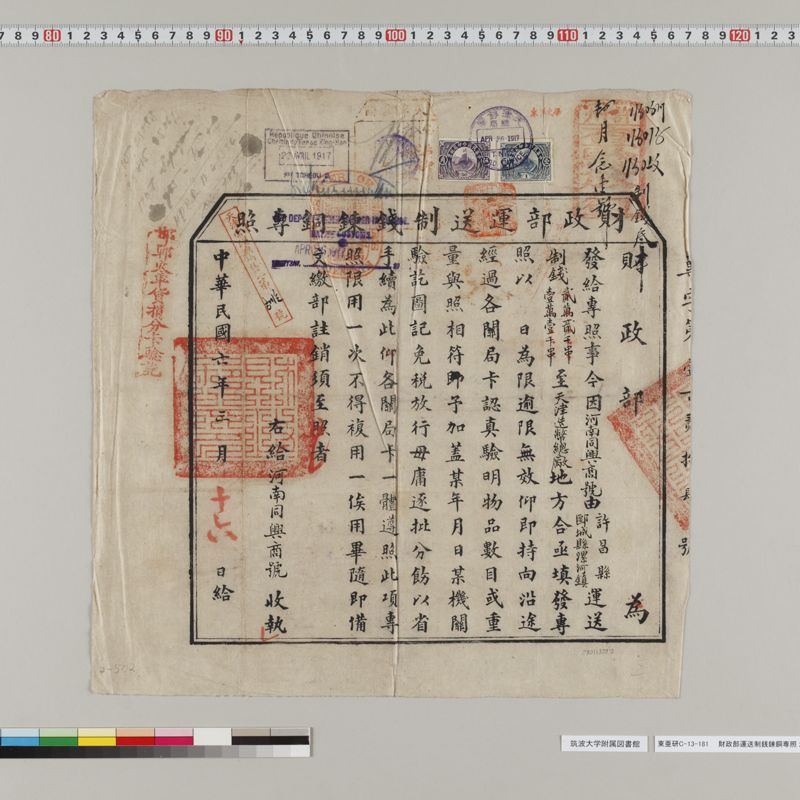 財政部運送制錢鍊銅專照
財政部 為
發給專照事今因河南同興商號由許昌縣郾城縣漯河鎮運送
制錢貳萬貳千串壹萬壹千串至天津造幣總廠地方合亟填發專
照以 日為限逾限無效仰即持向沿途
經過各關局卡認真驗明物品數目或重
量與照相符即予加蓋某年月日某機關
驗訖圖記免稅放行毋庸逐批分飭以省
手續為此仰各關局卡一體遵照此項專
照限用一次不得複用一俟用畢隨即備
文繳部註銷須至照者
右給河南同興商號 收執
中華民國六年三月十六日給
邯鄲火車貨捐分卡驗訖
République Chinoise
22 AVRIL 1917
APR 26 1917
APR 26 1917
2-502
筑波大学附属図書館
東亜研C-13-181 財政部運送制銭錬銅専照